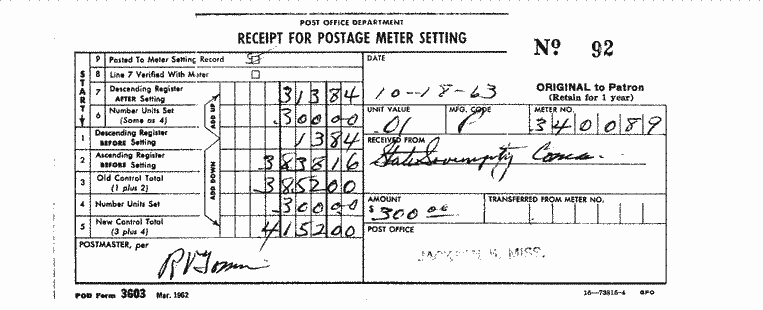 POST OFFICE DEPARTMENT
RECEIPT FOR POSTAGE METER SETTING
Nº 92
START
9 Posted To Meter Setting Record
8 Line 7 Verified With Meter
7 Descending Register AFTER Setting 31384
6 Number Units Set (Same as 4) 30000
ADD UP
1 Descending Register BEFORE Setting 1384
2 Ascending Register BEFORE Setting 383816
3 Old Control Total (1 plus 2) 385200
ADD DOWN
4 Number Units Set 30000
5 New Control Total (3 plus 4) 415200
POSTMASTER, per
DATE
10-18-63
ORIGINAL to Patron
(Retain for 1 year)
UNIT VALUE .01
MFG. CODE P
METER NO. 340089
RECEIVED FROM
State Sovereignty
AMOUNT
$ 300 00
TRANSFERRED FROM METER NO.
POST OFFICE
JACKSON 5, MISS.
POD Form 3603 Mar. 1962
16—73815-4 GPO